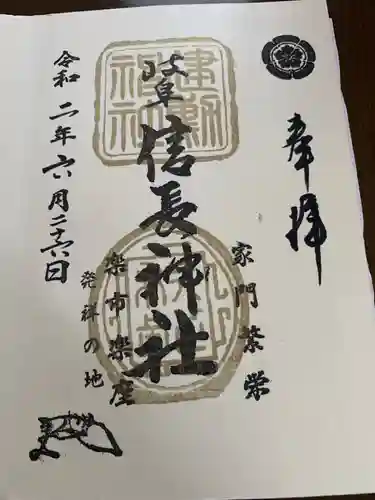 奉拝
家門繁栄
岐阜信長神社
楽市楽座
発祥の地
令和二年六月二十六日
建勲
神社